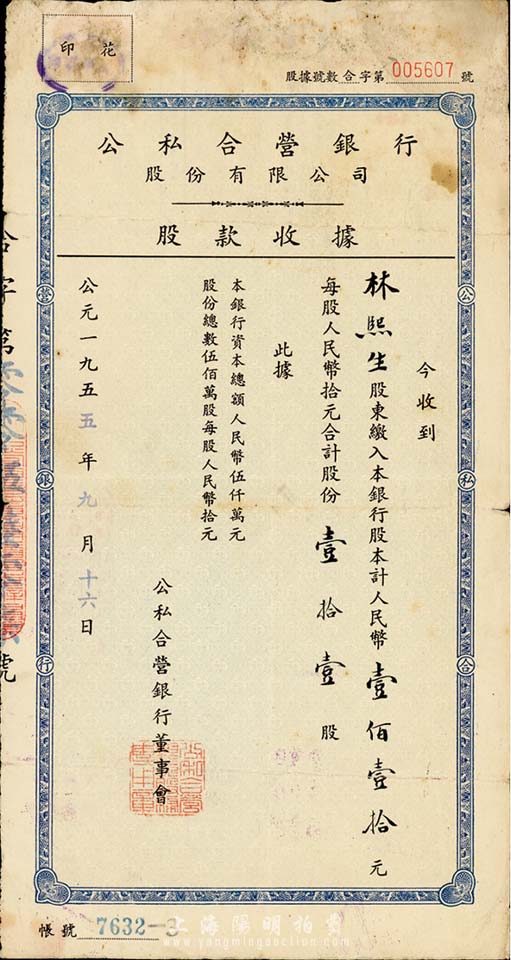 印花
股據號數合字第005607號
公私合營銀行
股份有限公司
股款收據
今收到
林熙生股東繳入本銀行股本計人民幣壹佰壹拾元
每股人民幣拾元合計股份壹拾壹股
此據
本銀行資本總額人民幣伍仟萬元
股份總數伍佰萬股每股人民幣拾元
公私合營銀行董事會
公元一九五五年九月十六日
公私合營銀行
帳號7632-3
上海陽明拍賣
www.yangmingauction.com